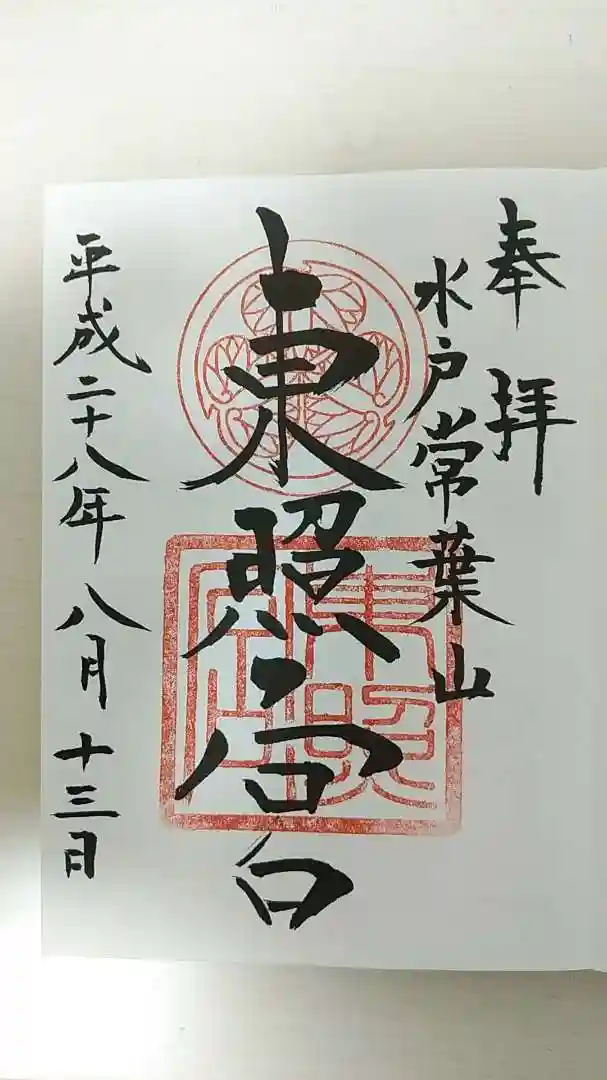 奉拝
水戸常葉山
東照宮
平成二十八年八月十三日
東照宮印